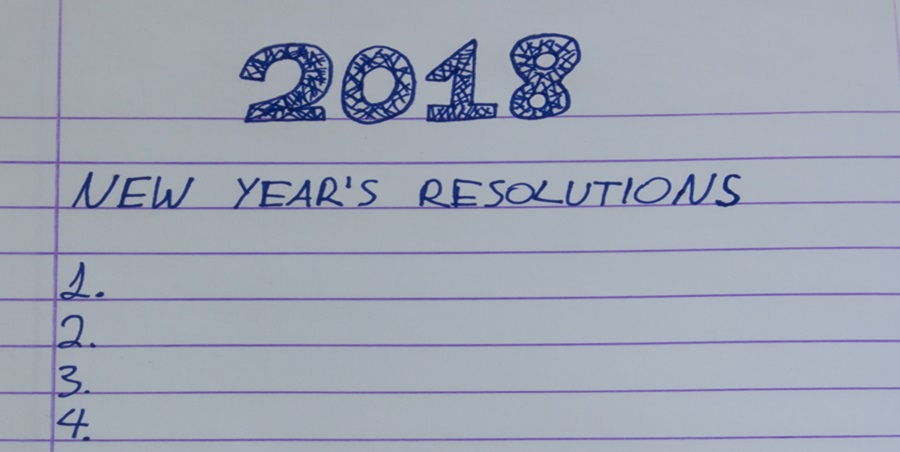 2018
NEW YEAR'S RESOLUTIONS
1.
2.
3.
4.